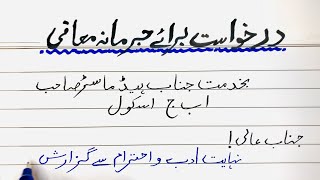 درخواست برائے جرمانہ معافی
بخدمت جناب ہیڈ ماسٹر صاحب
ا ب ج اسکول
جناب عالی!
نہایت ادب و احترام سے گزارش